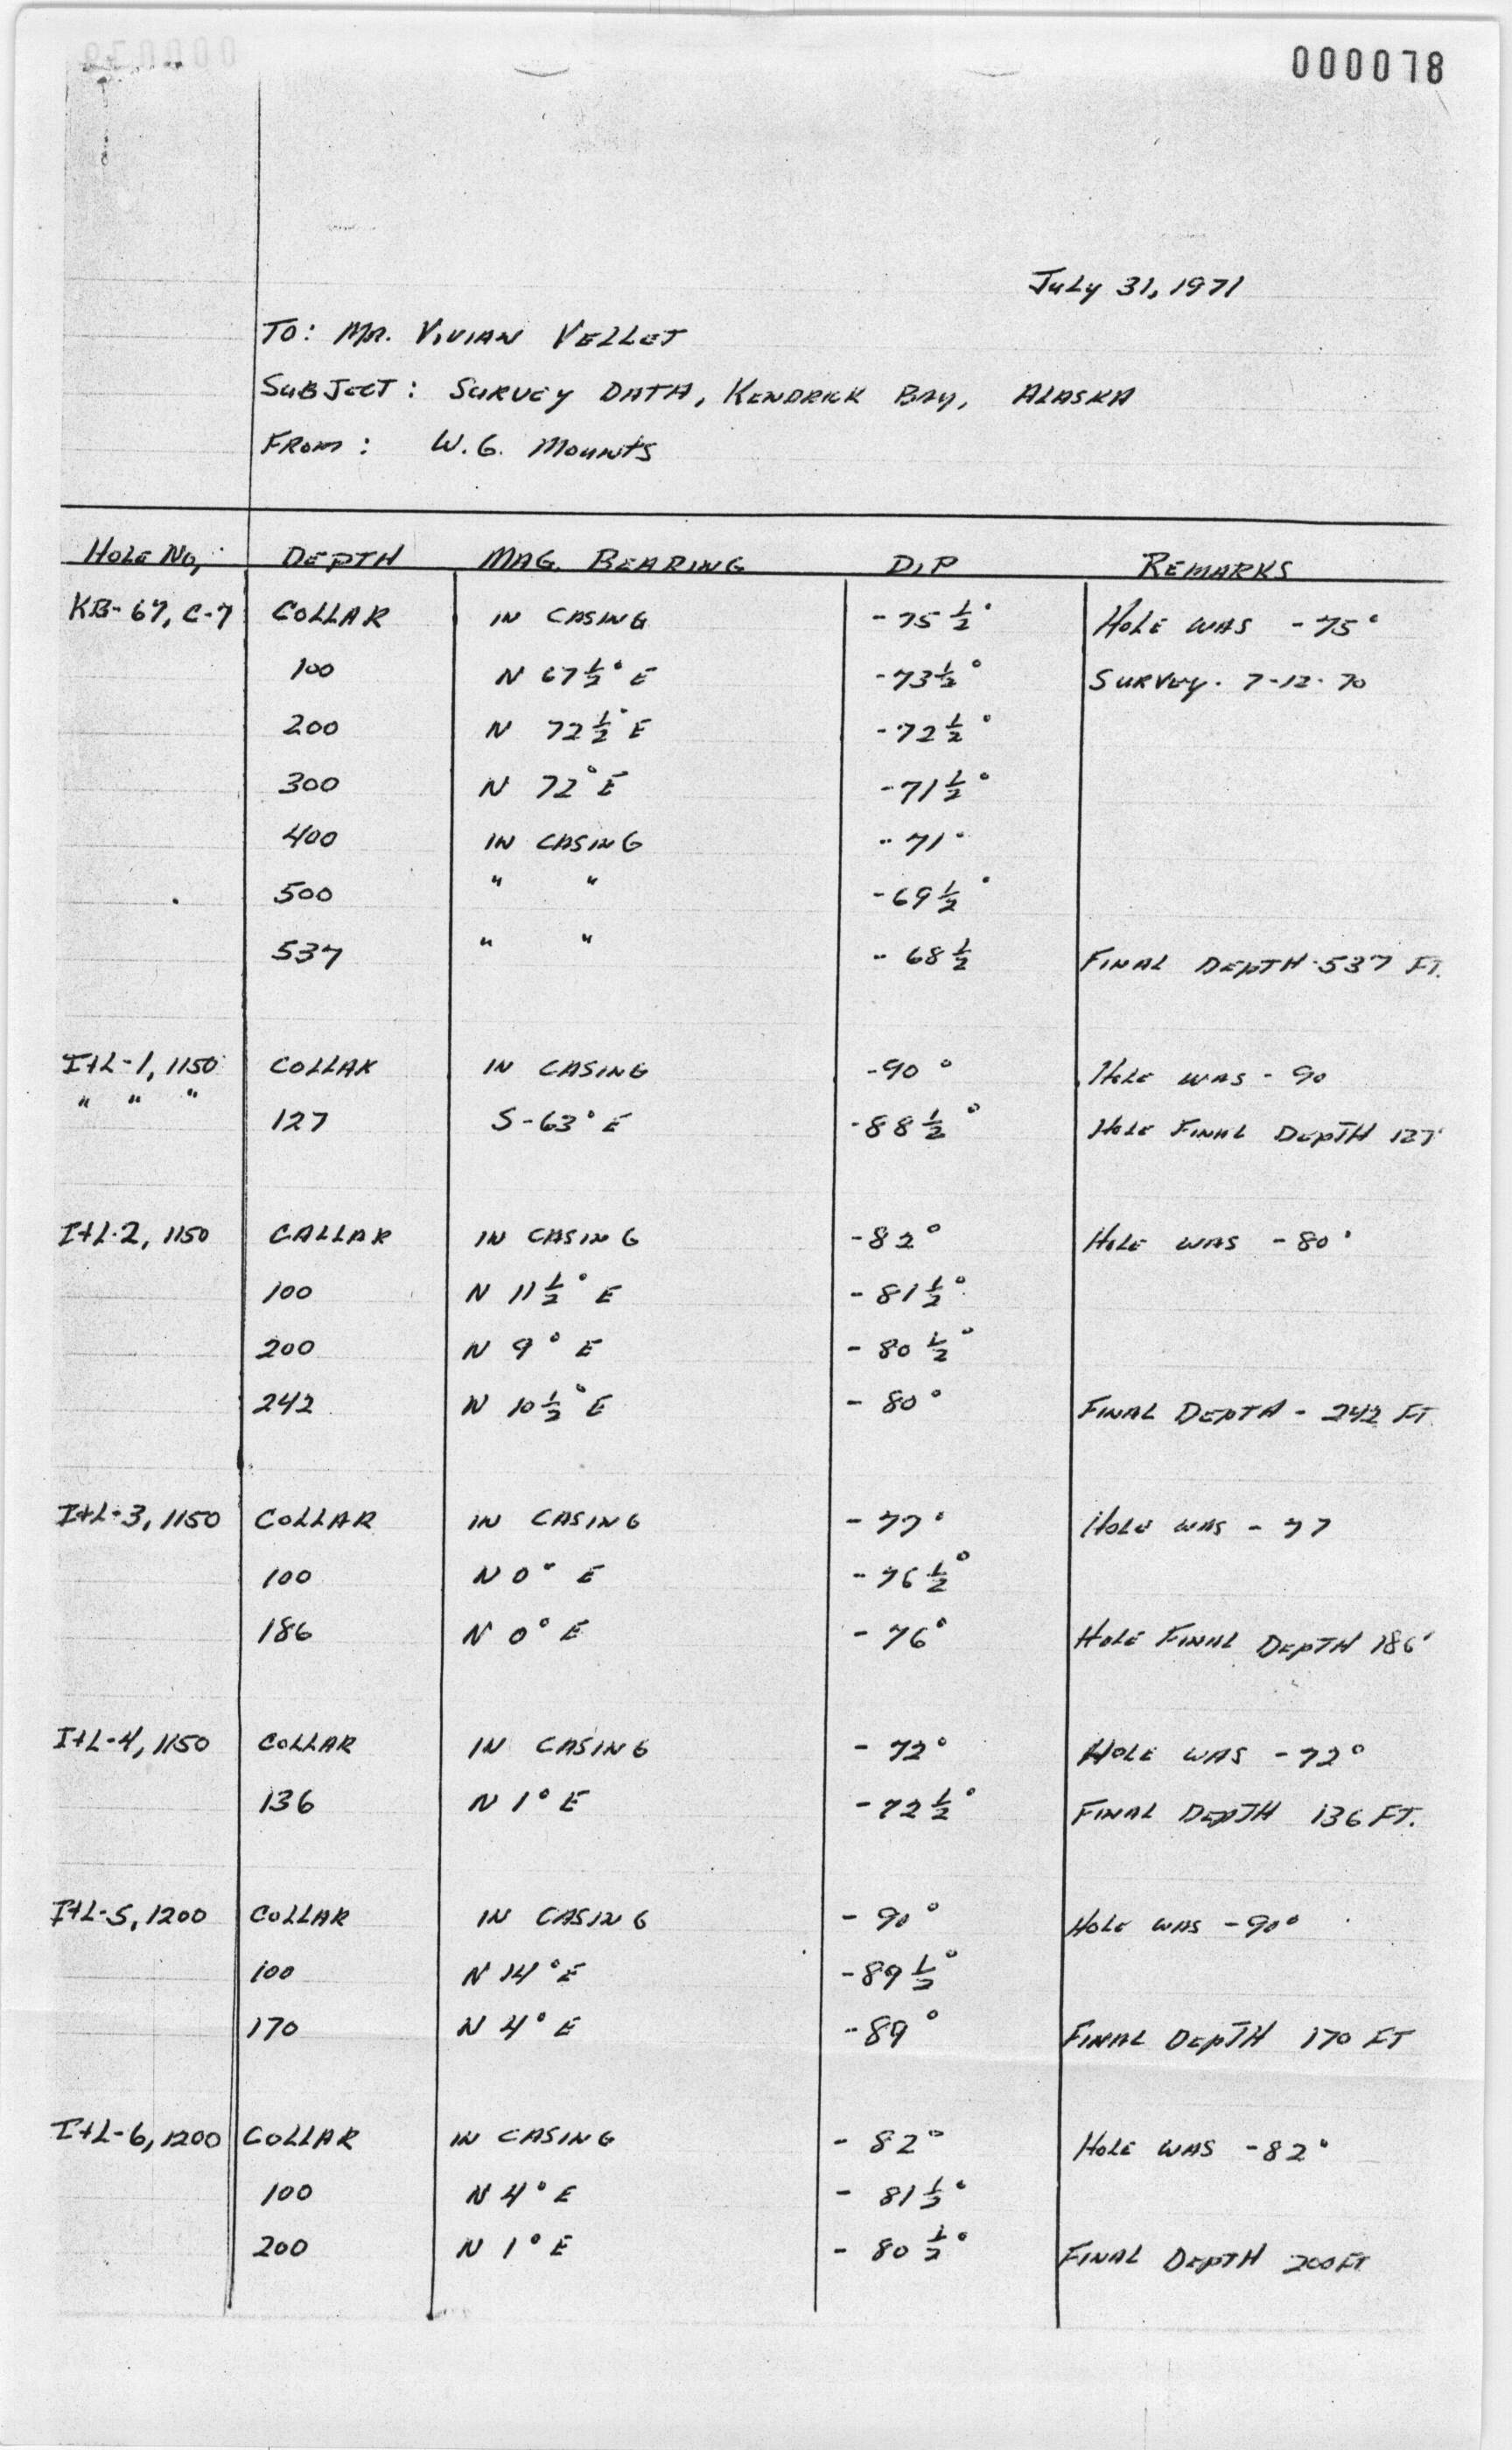 000078
July 31, 1971
TO: MR. VIVIAN VELLET
SUBJECT: SURVEY DATA, KENDRICK BAY, ALASKA
FROM: W.G. MOUNTS
HOLE NO, DEPTH MAG. BEARING DIP REMARKS
KB-67, C-7 COLLAR IN CASING -75 1/2° HOLE WAS -75°
100 N 67 1/2° E -73 1/2° SURVEY. 7-12-70
200 N 72 1/2° E -72 1/2°
300 N 72° E -71 1/2°
400 IN CASING -71°
500 " " -69 1/2°
537 " " -68 1/2 FINAL DEPTH-537 FT.
I+L-1, 1150 COLLAR IN CASING -90° HOLE WAS - 90
" " " 127 S-63° E -88 1/2° HOLE FINAL DEPTH 127'
I+L-2, 1150 CALLAR IN CASING -82° HOLE WAS -80°
100 N 11 1/2° E -81 1/2°
200 N 9° E -80 1/2°
242 N 10 1/2° E -80° FINAL DEPTH - 242 FT.
I+L-3, 1150 COLLAR IN CASING -77° HOLE WAS - 77
100 N 0° E -76 1/2°
186 N 0° E -76° HOLE FINAL DEPTH 186'
I+L-4, 1150 COLLAR IN CASING -72° HOLE WAS -72°
136 N 1° E -72 1/2° FINAL DEPTH 136 FT.
I+L-5, 1200 COLLAR IN CASING -90° HOLE WAS -90°
100 N 14° E -89 1/2°
170 N 4° E -89° FINAL DEPTH 170 FT
I+L-6, 1200 COLLAR IN CASING -82° HOLE WAS -82°
100 N 4° E -81 1/2°
200 N 1° E -80 1/2° FINAL DEPTH 200 FT